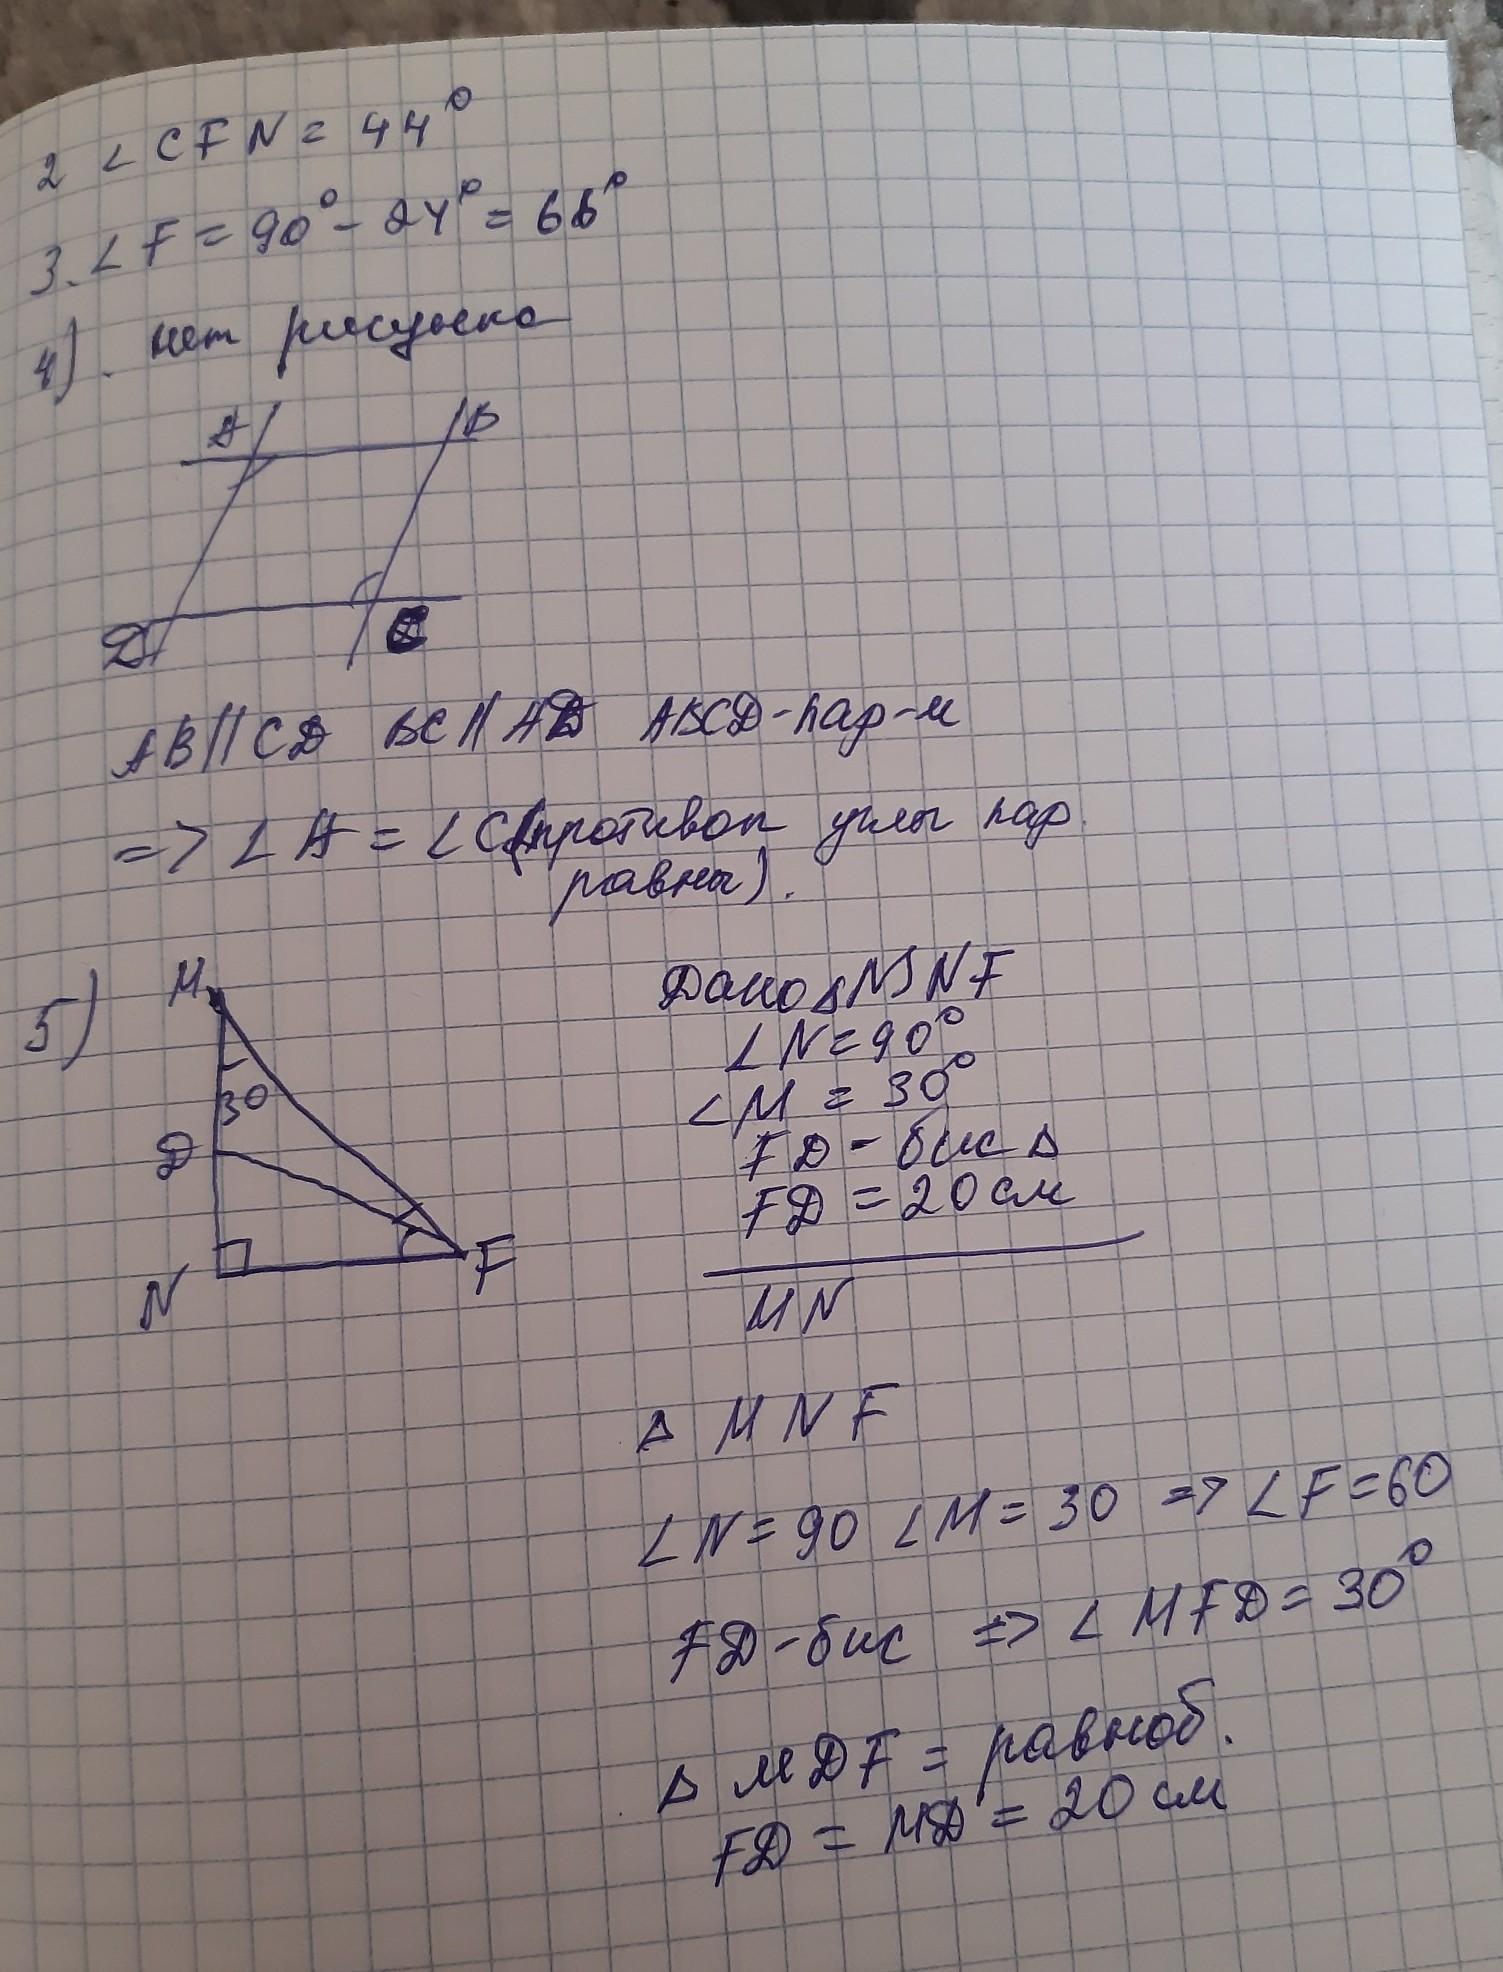 2 ∠CFN = 44°
3. ∠F = 90° - 24° = 66°
4). нет рисунка
A B
D C
AB || CD BC || AD ABCD-пар-м
=> ∠A = ∠C (противоп углы пар.
равны).
5) M
Дано △ MNF
∠N = 90°
30
∠M = 30°
D
FD - бис △
FD = 20 см
N F
MN
△ MNF
∠N = 90 ∠M = 30 => ∠F = 60
FD - бис => ∠MFD = 30°
△ MDF = равноб.
FD = MD = 20 см